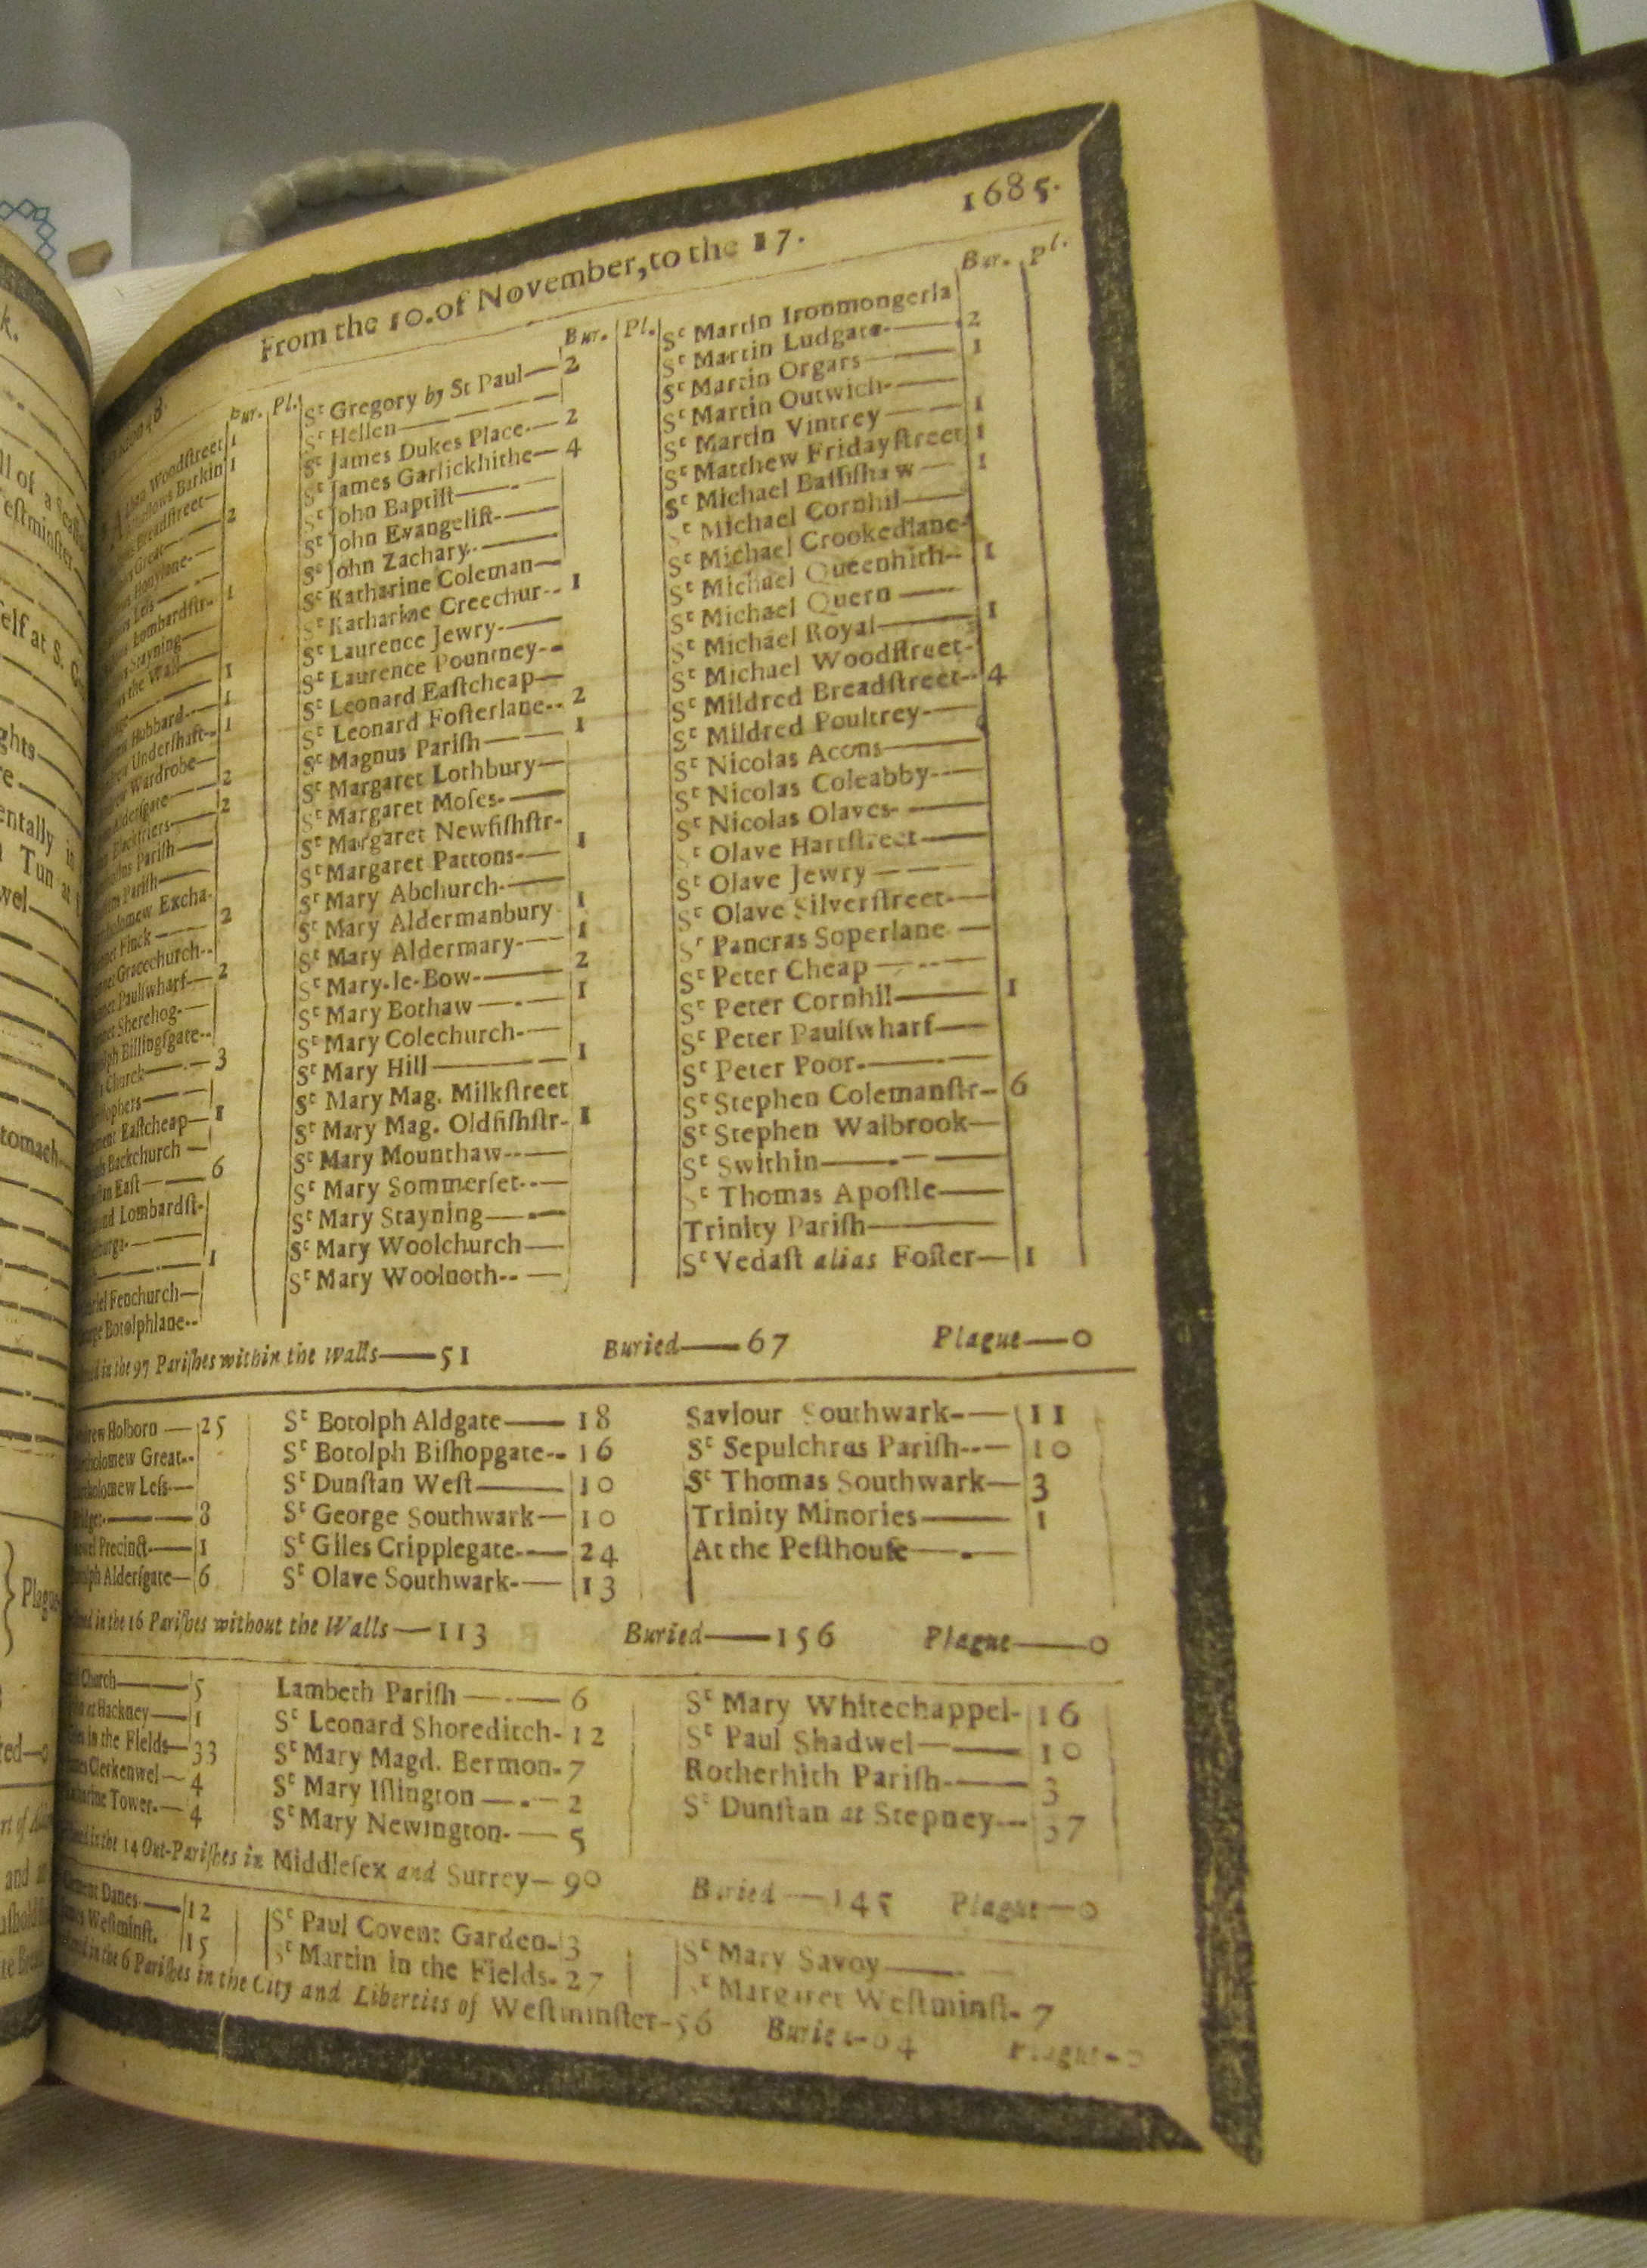 From the 10. of November, to the 17. 1685.
Bur. Pl.
Woodſtreet 1
Barkin 1
Breadſtreet—
2
Honylane-
Leſs
Lombardſtr- 1
Stayning—
the Wall—
1
Hubbard— 1
Underſhaft-- 1
Wardrobe—
Alderſgate— 2
Blackfriers— 2
Pariſh—
Pariſh—
Excha-
Finck— 2
Gracechurch--
Paulſwharf— 2
Sherehog-
Billingſgate--
Church— 3
Eaſtcheap— 1
Backchurch—
Eaſt— 6
Lombardſt-
1
Fenchurch—
Botolphlane--
Bur. Pl.
Sᵗ Gregory by St Paul— 2
Sᵗ Hellen—
Sᵗ James Dukes Place-— 2
Sᵗ James Garlickhithe— 4
Sᵗ John Baptiſt—
Sᵗ John Evangeliſt-—
Sᵗ John Zachary-—
Sᵗ Katharine Coleman—
Sᵗ Katharine Creechur-- 1
Sᵗ Laurence Jewry-—
Sᵗ Laurence Pountney--
Sᵗ Leonard Eaſtcheap—
Sᵗ Leonard Foſterlane-- 2
Sᵗ Magnus Pariſh— 1
Sᵗ Margaret Lothbury—
Sᵗ Margaret Moſes-—
Sᵗ Margaret Newfiſhſtr-
Sᵗ Margaret Pattons-— 1
Sᵗ Mary Abchurch-—
Sᵗ Mary Aldermanbury 1
Sᵗ Mary Aldermary-— 1
Sᵗ Mary-le-Bow-— 2
Sᵗ Mary Bothaw— 1
Sᵗ Mary Colechurch-—
Sᵗ Mary Hill— 1
Sᵗ Mary Mag. Milkſtreet
Sᵗ Mary Mag. Oldfiſhſtr- 1
Sᵗ Mary Mounthaw--—
Sᵗ Mary Sommerſet--—
Sᵗ Mary Stayning—
Sᵗ Mary Woolchurch—
Sᵗ Mary Woolnoth-- —
Bur. Pl.
Sᵗ Martin Ironmongerla
Sᵗ Martin Ludgate-— 2
Sᵗ Martin Orgars— 1
Sᵗ Martin Outwich-—
Sᵗ Martin Vintrey— 1
Sᵗ Matthew Fridayſtreet 1
Sᵗ Michael Baſſiſhaw— 1
Sᵗ Michael Cornhil—
Sᵗ Michael Crookedlane-
Sᵗ Michael Queenhith-- 1
Sᵗ Michael Quern—
Sᵗ Michael Royal— 1
Sᵗ Michael Woodſtreet-
Sᵗ Mildred Breadſtreet-- 4
Sᵗ Mildred Poultrey-—
Sᵗ Nicolas Acons—
Sᵗ Nicolas Coleabby--—
Sᵗ Nicolas Olaves- —
Sᵗ Olave Hartſtreet—
Sᵗ Olave Jewry—
Sᵗ Olave Silverſtreet-—
Sᵗ Pancras Soperlane —
Sᵗ Peter Cheap—
Sᵗ Peter Cornhil— 1
Sᵗ Peter Paulſwharf—
Sᵗ Peter Poor-—
Sᵗ Stephen Colemanſtr- 6
Sᵗ Stephen Walbrook—
Sᵗ Swithin—
Sᵗ Thomas Apoſtle—
Trinity Pariſh—
Sᵗ Vedaſt alias Foſter— 1
in the 97 Pariſhes within the Walls—51 Buried—67 Plague—0
Holborn— 25
Great--
Leſs-—
8
Precinct— 1
Alderſgate— 6
Sᵗ Botolph Aldgate— 18
Sᵗ Botolph Biſhopgate-- 16
Sᵗ Dunſtan Weſt— 10
Sᵗ George Southwark— 10
Sᵗ Giles Cripplegate-— 24
Sᵗ Olave Southwark-— 13
Saviour Southwark-— 11
Sᵗ Sepulchres Pariſh--— 10
Sᵗ Thomas Southwark— 3
Trinity Minories— 1
At the Peſthouſe—
in the 16 Pariſhes without the Walls—113 Buried—156 Plague—0
Church— 5
at Hackney— 1
in the Fields— 33
Clerkenwel— 4
Tower-— 4
Lambeth Pariſh— 6
Sᵗ Leonard Shoreditch- 12
Sᵗ Mary Magd. Bermon- 7
Sᵗ Mary Iſlington— 2
Sᵗ Mary Newington-— 5
Sᵗ Mary Whitechappel- 16
Sᵗ Paul Shadwel— 10
Rotherhith Pariſh-— 3
Sᵗ Dunſtan at Stepney--- 37
in the 14 Out-Pariſhes in Middleſex and Surrey—90 Buried—145 Plague—0
Danes-— 12
Weſtminſt. 15
Sᵗ Paul Covent Garden- 3
Sᵗ Martin in the Fields- 27
Sᵗ Mary Savoy—
Sᵗ Margaret Weſtminſt- 7
in the 6 Pariſhes in the City and Liberties of Weſtminſter-56 Buried-64 Plague-0